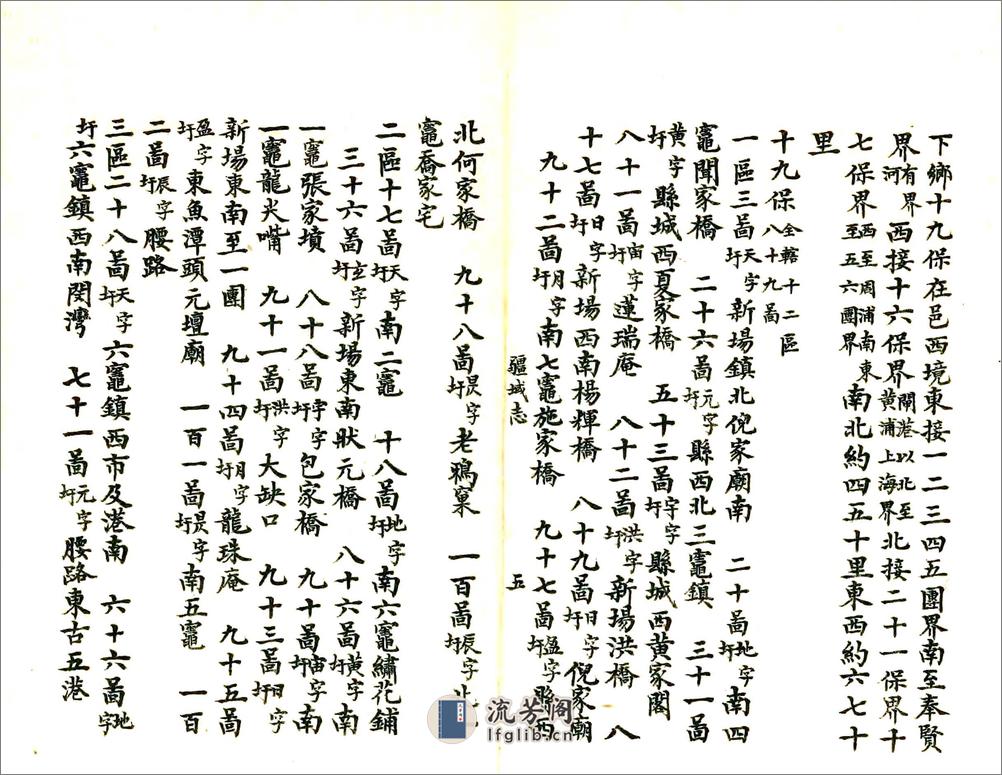 下鄉十九保在邑西境東接一二三四五團界南至奉賢
界有界河西接十六保界閘港以北至黃浦上海界北接二十一保界十
七保界西至周浦南東至五六團界南北約四五十里東西約六七十
里
十九保全轄十二區八十九啚
一區三啚天字圩新場鎮北倪家廟南 二十啚地字圩南四
竈聞家橋 二十六啚元字圩縣西北三竈鎮 三十一啚
黃字圩縣城西夏家橋 五十三啚宇字圩縣城西黃家閣
八十一啚宙字圩蓮瑞庵 八十二啚洪字圩新場洪橋 八
十七啚日字圩新場西南楊輝橋 八十九啚日字圩倪家廟
九十二啚月字圩南七竈施家橋 九十七啚盈字圩縣西
疆域志 五
北何家橋 九十八啚昃字圩老鴉窠 一百啚辰字圩北
竈喬家宅
二區十七啚天字圩南二竈 十八啚地字圩南六竈繡花鋪
三十六啚玄字圩新場東南狀元橋 八十六啚黃字圩南
一竈張家墳 八十八啚宇字圩包家橋 九十啚宙字圩南
一竈龍尖嘴 九十一啚洪字圩大缺口 九十三啚日字圩
新場東南至一團 九十四啚月字圩龍珠庵 九十五啚
盈字圩東魚潭頭元壇廟 一百一啚昃字圩南五竈 一百
二啚辰字圩腰路
三區二十八啚天字圩六竈鎮西市及港南 六十六啚地字
圩六竈鎮西南閔灣 七十一啚元字圩腰路東古五港
流芳阁
lfglib.cn